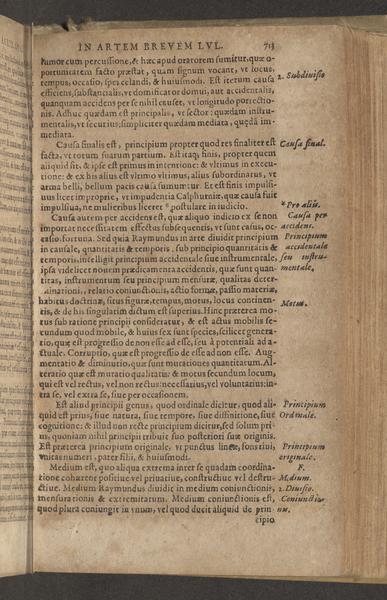 IN ARTEM BREVEM LVL. 713
rumor cum percussione, & hæc apud oratorem sumitur, quæ o-
portunitatem facto præstat, quam signum vocant, vt locus,
tempus, occasio, spes celandi, & huiusmodi. Est iterum causa
efficiens, substantialis, vt domificator domui, aut accidentalis,
quanquam accidens per se nihil causet, vt longitudo
nis. Adhuc quædam est principalis, vt sector: quædam instru-
mentalis, vt securitus: simpliciter quædam mediata, quędā im-
mediata.
Causa finalis est, principium propter quod res finaliter est
facta, vt totum suarum partium. Est itaq; finis, propter quem
aliquid sit, & ipse est primus in intentione: & vltimus in execu-
tione: & ex his alius est vltimo vltimus, alius subordinatus, vt
arma belli, bellum pacis causa sumuntur. Et est finis impulsi-
uus licet improprie, vt impudentia Calphurniæ, quæ causa fuit
impulsiua, ne mulieribus liceret * postulare in iudicio.
Causa autem per accidens est, quæ aliquo indicio ex se non
importat necessitatem effectus subsequentis, vt sunt casus, oc-
casio, fortuna. Sed quia Raymundus in arte diuidit principium
in causale, quantitatis & temporis, sub principio quantitatis &
temporis, intelligit principium accidentale siue instrumentale,
ipsa videlicet nouem prædicamenta accidentis, quæ sunt quan-
titas, instrumentum seu principium mensuræ, qualitas deter-
minationis, relatio coniunctionis, actio formæ, passio materiæ,
habitus doctrinæ, situs figuræ, tempus, motus, locus continen-
tis, & de his singulatim dictum est superius. Hinc præterea mo-
tus sub ratione principii consideratur, & est actus mobilis se-
cundum quod mobile, & huius sex sunt species, scilicet genera-
tio, quæ est progressio de non esse ad esse, seu à potentiali ad a-
ctuale. Corruptio, quæ est progressio de esse ad non esse. Aug-
mentatio & diminutio, quæ sunt mutationes quantitatum. Al-
teratio quæ est mutatio qualitatis: & motus secundum locum,
qui est vel rectus, vel non rectus: necessarius, vel voluntarius: in-
tra se, vel extra se, siue per occasionem.
Est aliud principii genus, quod ordinale dicitur, quod ali-
quid est prius, siue natura, siue tempore, siue diffinitione, siue
cognitione: & illud non recte principium dicitur, sed solum pri-
us, quoniam nihil principii tribuit suo posteriori suæ originis.
Est præterea principium originale, vt punctus lineæ, sons riui,
vnitas numeri, pater filii, & huiusmodi.
Medium est, quo aliqua extrema inter se quadam coordina-
tione cohærent positiue vel priuatiue, constructiue vel destru-
ctiue. Medium Raymundus diuidit in medium coniunctionis,
mensurationis & extremitatum. Medium coniunctionis est,
quod plura coniungit in vnum, vel quod ducit aliquid de prin-
cipio
2. Subdiuisio
Causa final.
* Pro aliis.
Causa per
accidens.
Principium
accidentale
seu instru-
mentale,
Motus.
Principium
Ordinale.
Principium
originale.
F.
Medium.
2. Diuisio.
Coniunctio-
nis.